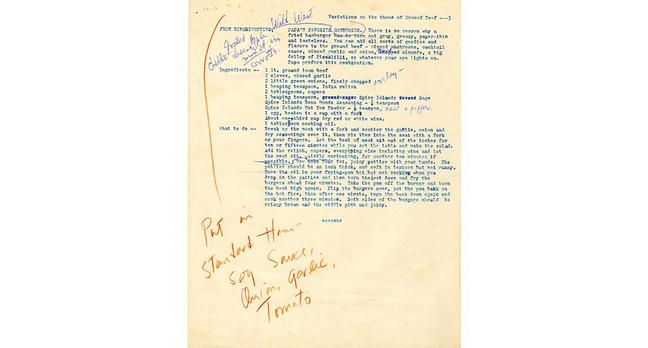 Variations on the theme of Ground Beef ---3
Wild West
FROM EXPERIMENTING, PAPA'S FAVORITE HAMBURGER. There is no reason why a
fried hamburger has to turn out gray, greasy, paper-thin
and tasteless. You can add all sorts of goodies and
flavors to the ground beef - minced mushrooms, cocktail
sauce, minced garlic and onion, chopped almonds, a big
dollop of Piccadilli, or whatever your eye lights on.
Papa prefers this combination.
grated
carrots
Ingredients -- 1 lb. ground lean beef
2 cloves, minced garlic
2 little green onions, finely chopped
parsley
1 heaping teaspoon, India relish
2 tablespoons, capers
1 heaping teaspoon, Spice Islands Sage
Spice Islands Beau Monde Seasoning - ½ teaspoon
Spice Islands Mei Yen Powder - ½ teaspoon, salt & pepper
1 egg, beaten in a cup with a fork
About one-third cup dry red or white wine.
1 tablespoon cooking oil.
What to do -- Break up the meat with a fork and scatter the garlic, onion and
dry seasonings over it, then mix them into the meat with a fork
or your fingers. Let the bowl of meat sit out of the icebox for
ten or fifteen minutes while you set the table and make the salad.
Add the relish, capers, everything else including wine and let
the meat sit, quietly marinating, for another ten minutes if
possible. Now make four fat, juicy patties with your hands. The
patties should be an inch thick, and soft in texture but not runny.
Have the oil in your frying-pan hot but not smoking when you
drop in the patties and then turn the heat down and fry the
burgers about four minutes. Take the pan off the burner and turn
the heat high again. Flip the burgers over, put the pan back on
the hot fire, then after one minute, turn the heat down again and
cook another three minutes. Both sides of the burgers should be
crispy brown and the middle pink and juicy.
Put in
Standard Ham-
Soy Sauce,
Onion, Garlic,
Tomato